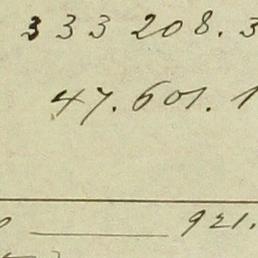 333 208. 3
47. 601. 1
921.